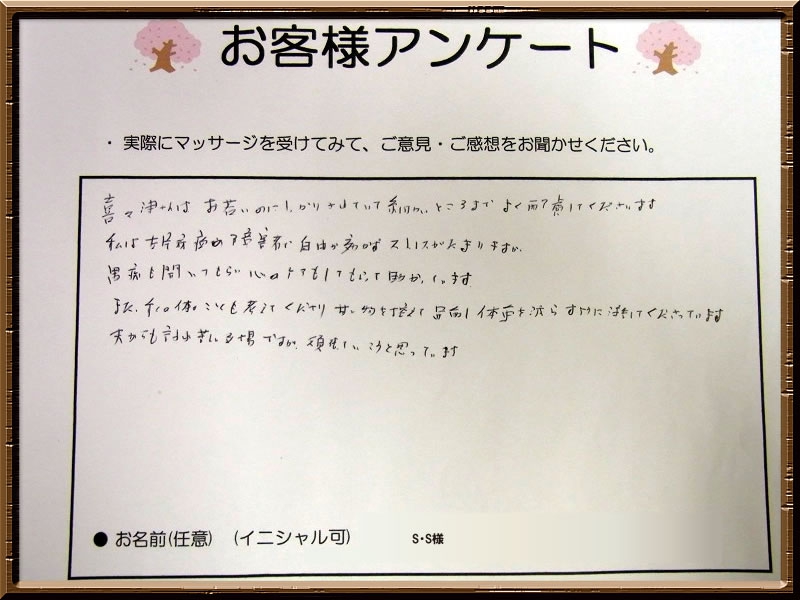 お客様アンケート
・ 実際にマッサージを受けてみて、ご意見・ご感想をお聞かせください。
喜々津さんは お若いのにしっかりされていて 細かいところまで よく配慮してくださいます
私は 障害者で 自由が効かず ストレスがたまりますが、
も聞いてもらい 心のケアもしてもらって助かっています
また、私の体のことも考えてくださり 甘い物を控えて 体重を減らすように してくださっています
ですが、頑張っていこうと思っています
● お名前(任意) (イニシャル可) S・S様